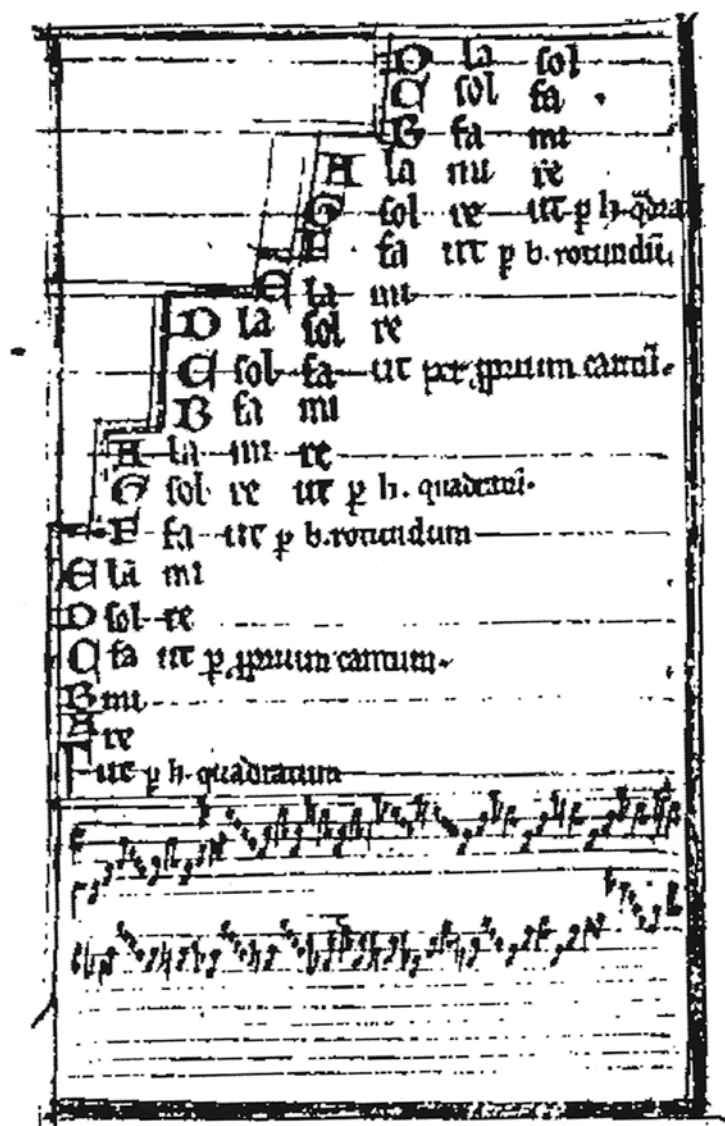 D la sol
C sol fa
B fa mi
A la mi re
G sol re ut p h. q̃dra
F fa ut p b. rotundũ.
E la mi
D la sol re
C sol fa ut per ꝓprium cantũ.
B fa mi
A la mi re
G sol re ut p h. quadratũ.
F fa ut p b. rotundum
E la mi
D sol re
C fa ut p ꝓprium cantum.
B mi
A re
Γ ut p h. quadratum